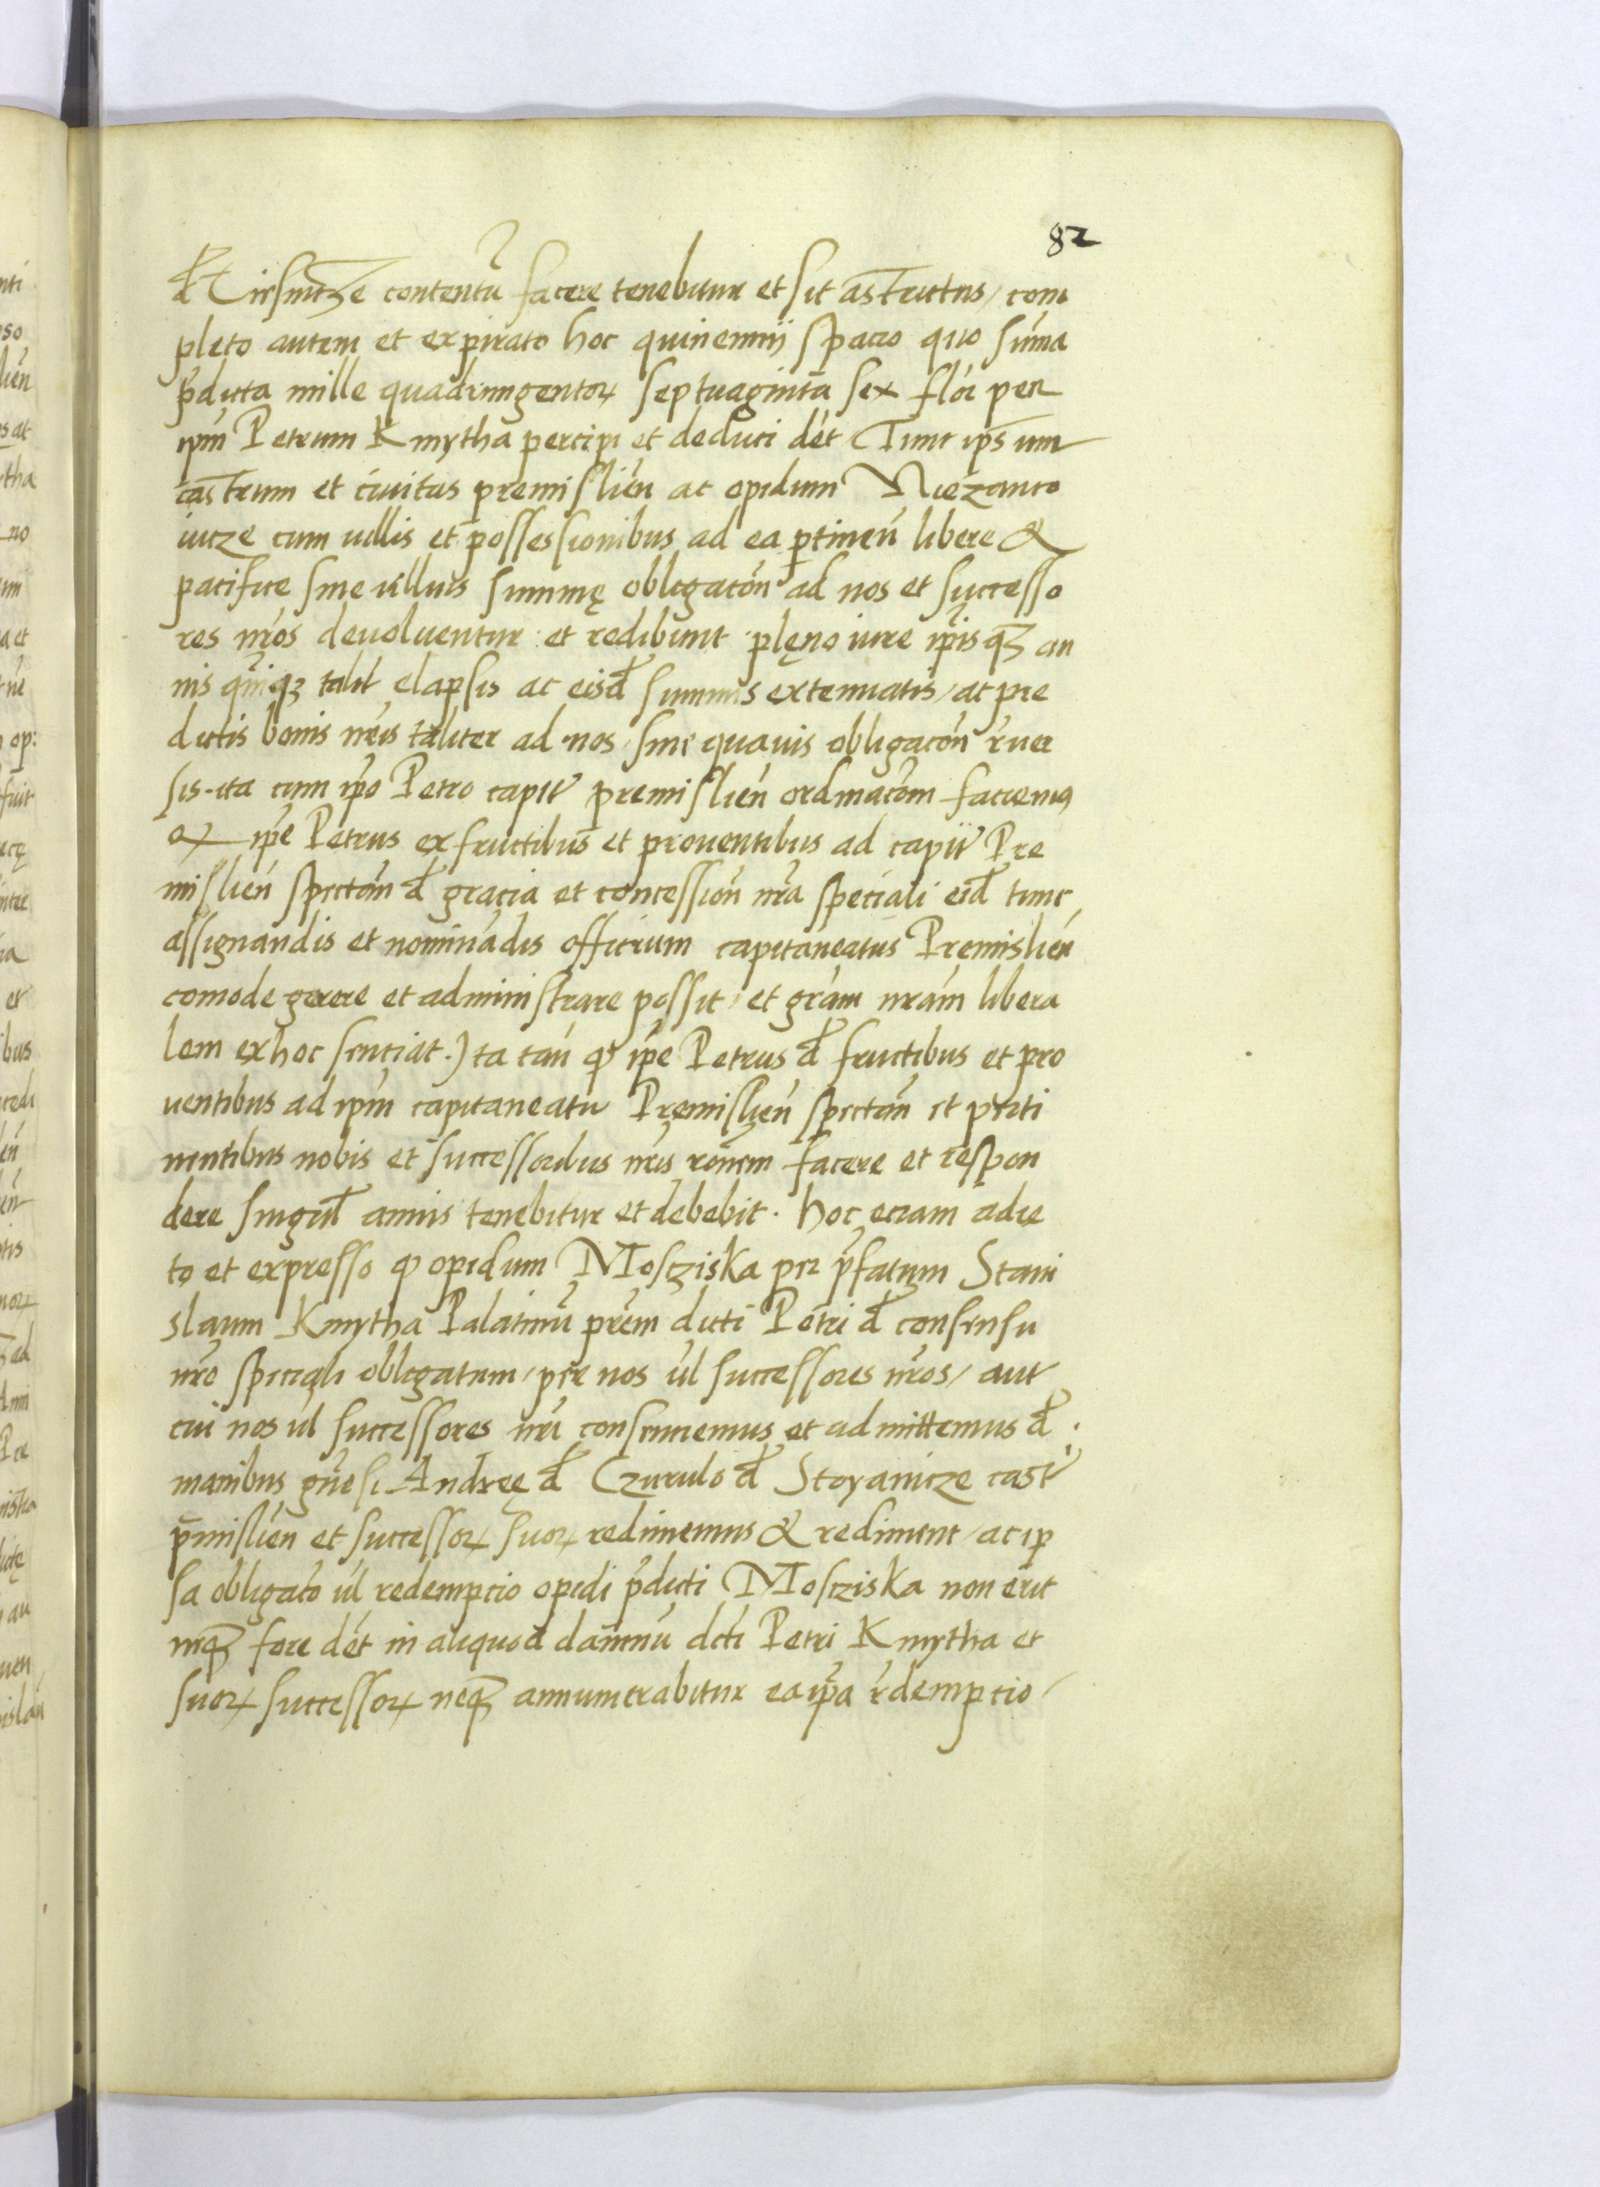 82
d Tirsnicze contentũ facere tenebitur et sit astrictus / com
pleto autem et expirato hoc quinennij spacio quo sũma
p̃dicta mille quadringentorꝝ septuaginta sex flor̃ per
ip̃m Petrum Kmytha percipi et deduci dẽt Tunc ips um
castrum et ciuitas premisliẽn ac opidum Niezanco
uicze cum villis et possessionibus ad ea ꝑtineñ libere &
pacifice sine vllius summę obligatõn ad nos et successo
res nr̃os deuoluentur et redibunt plęno iure ip̃isqꝫ an
nis quĩqꝫ talit̃ elapsis ac eisd̃ summis extenuatis / ac pre
dictis bonis nr̃is taliter ad nos sine quauis obligacõn r̃uer
sis · ita cum ip̃o Petro capit̃ premisliẽn ordinacõm faciemꝰ
qꝫ ip̃e Petrus ex fructibus et prouentibus ad capit̃ Pre
misliẽn spectañ d̃ gracia et concessioñ nr̃a speciali eid̃ tunc
assignandis et nominãdis officium capitaneatus Premisliẽn
comode gerere et administrare possit / et gr̃am nr̃am libera
lem ex hoc senciat · Ita tañ ꝙ ip̃e Petrus d̃ fructibus et pro
uentibus ad ip̃m capitaneatũ Pręmisliẽn spectañ et perti
nentibus nobis et successoribus nr̃is rõnem facere et respon
dere singul̃ annis tenebitur et debebit · hoc eciam adie
to et expresso ꝙ opidum Mosciska per p̃fatum Stani
slaum Kmytha Palatinũ pr̃em dicti Petri d̃ consensu
nr̃o speciali obligatum / per nos ũl successores nr̃os / aut
cui nos ũl successores nr̃i consenciemus et admittemus d̃
manibus gñesi Andreę d̃ Czurulo d̃ Stoyanicze cast̃
p̃misliẽn et successorꝝ suorꝝ redimemus & rediment / ac ip
sa obligatõ ũl redempcio opidi p̃dicti Mosciska non erit
neqꝫ fore dẽt in aliquod damnũ dc̃ti Petri Kmytha et
suorꝝ successorꝝ neqꝫ annumerabitur ea ip̃a r̃dempcio /